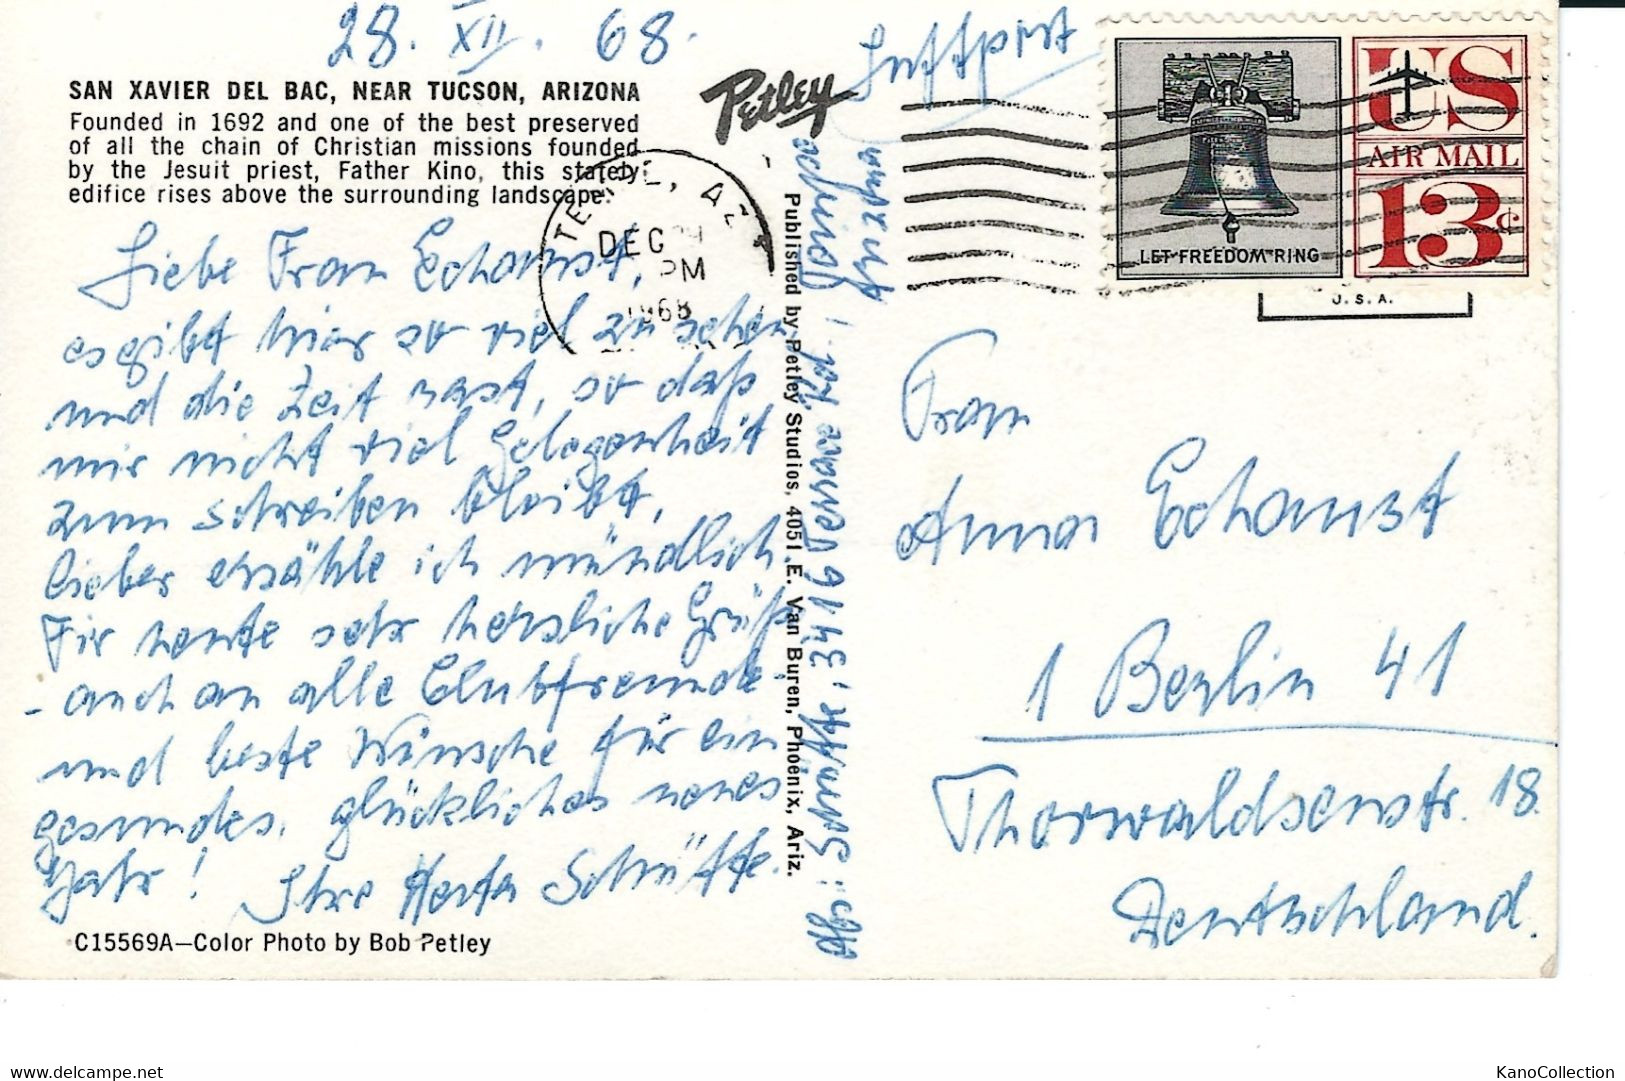 28. XII. 68.
Luftpost
SAN XAVIER DEL BAC, NEAR TUCSON, ARIZONA
Founded in 1692 and one of the best preserved
of all the chain of Christian missions founded
by the Jesuit priest, Father Kino, this stately
edifice rises above the surrounding landscape.
Petley
TEMPE, ARIZ
DEC
PM
1968
US
AIR MAIL
13¢
LET FREEDOM RING
U.S.A.
Liebe Frau Echaust,
es gibt hier so viel zu sehen
und die Zeit rast, so daß
mir nicht viel Gelegenheit
zum schreiben bleibt,
lieber erzähle ich mündlich.
Für heute sehr herzliche Grüße
- auch an alle Clubfreunde -
und beste Wünsche für ein
gesundes, glückliches neues
Jahr! Ihre Herta Schütte.
C15569A—Color Photo by Bob Petley
Published by Petley Studios, 4051 E. Van Buren, Phoenix, Ariz.
Abs: Schütte, 3416
Arizona
Frau
Anna Echaust
1 Berlin 41
Thorwaldsenstr. 18.
Deutschland.
delcampe.net
KanoCollection